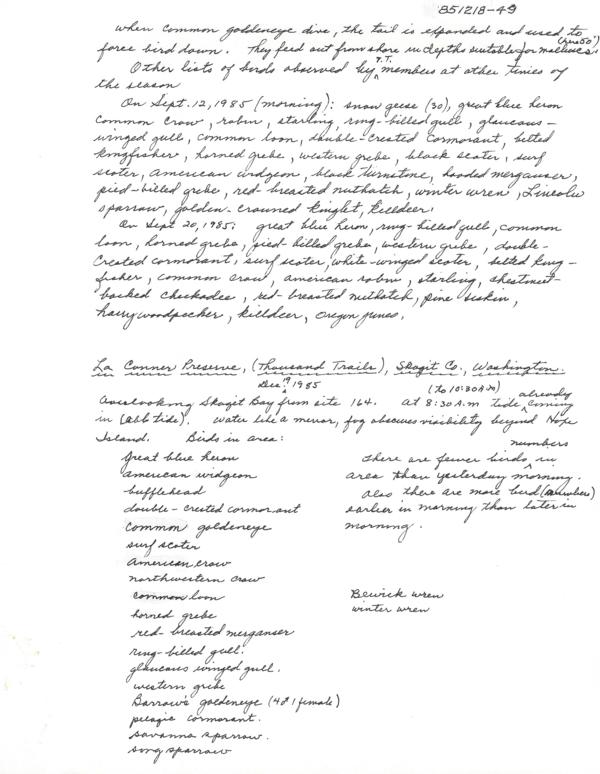 851218-49
when common goldeneye dive, the tail is expanded and used to
force bird down. They feed out from shore in depths suitable for molluscs.
Other lists of birds observed by T.T. members at other times of
the season
On Sept. 12, 1985 (morning): snow geese (30), great blue heron
common crow, robin, starling, ring-billed gull, glaucous-
winged gull, common loon, double-crested cormorant, belted
kingfisher, horned grebe, western grebe, black scoter, surf
scoter, american widgeon, black turnstone, hooded merganser,
pied-billed grebe, red-breasted nuthatch, winter wren, Lincoln
sparrow, golden-crowned kinglet, killdeer.
On Sept 20, 1985: great blue heron, ring-billed gull, common
loon, horned grebe, pied-billed grebe, western grebe, double-
created cormorant, surf scoter, white-winged scoter, belted king-
fisher, common crow, american robin, starling, chestnut-
backed chickadee, red-breasted nuthatch, pine siskin,
hairy woodpecker, killdeer, Oregon junco.
La Conner Preserve, (Thousand Trails), Skagit Co., Washington.
Dec. 19 1985
Overlooking Skagit Bay from site 164. At 8:30 A.M (to 10:30 A.M) tide already coming
in (ebb tide). Water like a mirror, fog obscures visibility beyond Hope
Island. Birds in area:
great blue heron
american widgeon
bufflehead
double-crested cormorant
common goldeneye
surf scoter
american crow
northwestern crow
common loon
horned grebe
red-breasted merganser
ring-billed gull.
glaucous winged gull.
western grebe
Barrow's goldeneye (4♂ 1 female)
pelagic cormorant.
savanna sparrow.
song sparrow
there are fewer birds numbers in
area than yesterday morning.
Also there are more bird (numbers)
earlier in morning than later in
morning.
Bewick wren
winter wren